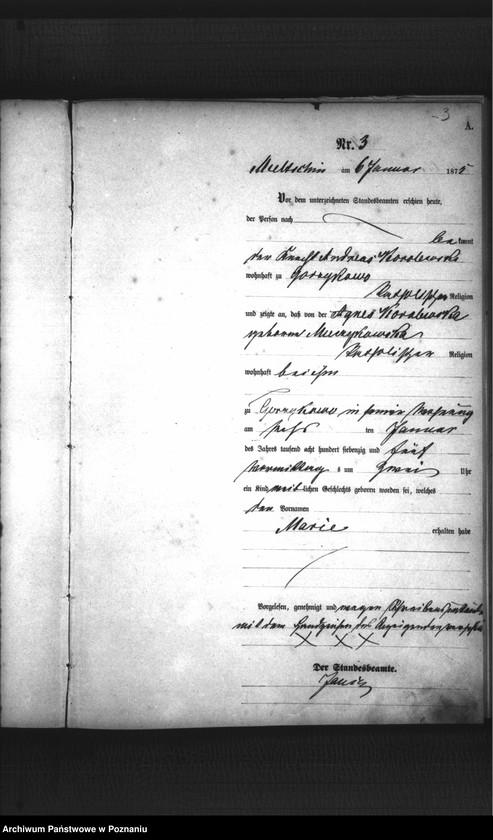 3
A.
Nr. 3
am 6 Januar 1875
Vor dem unterzeichneten Standesbeamten erschien heute,
der Person nach
bekannt
der Knecht Andreas
wohnhaft zu
katholischer Religion
und zeigte an, daß von der Agnes
geborene
katholischer Religion
wohnhaft bei ihm
zu in seiner Wohnung
am ten Januar
des Jahres tausend acht hundert siebenzig und fünf
Vormittag s um zwei Uhr
ein Kind weiblichen Geschlechts geboren worden sei, welches
den Vornamen
Marie
erhalten habe
Vorgelesen, genehmigt und wegen Schreibens
mit dem Handzeichen des Anzeigenden versehen
X X X
Der Standesbeamte.
Archiwum Państwowe w Poznaniu